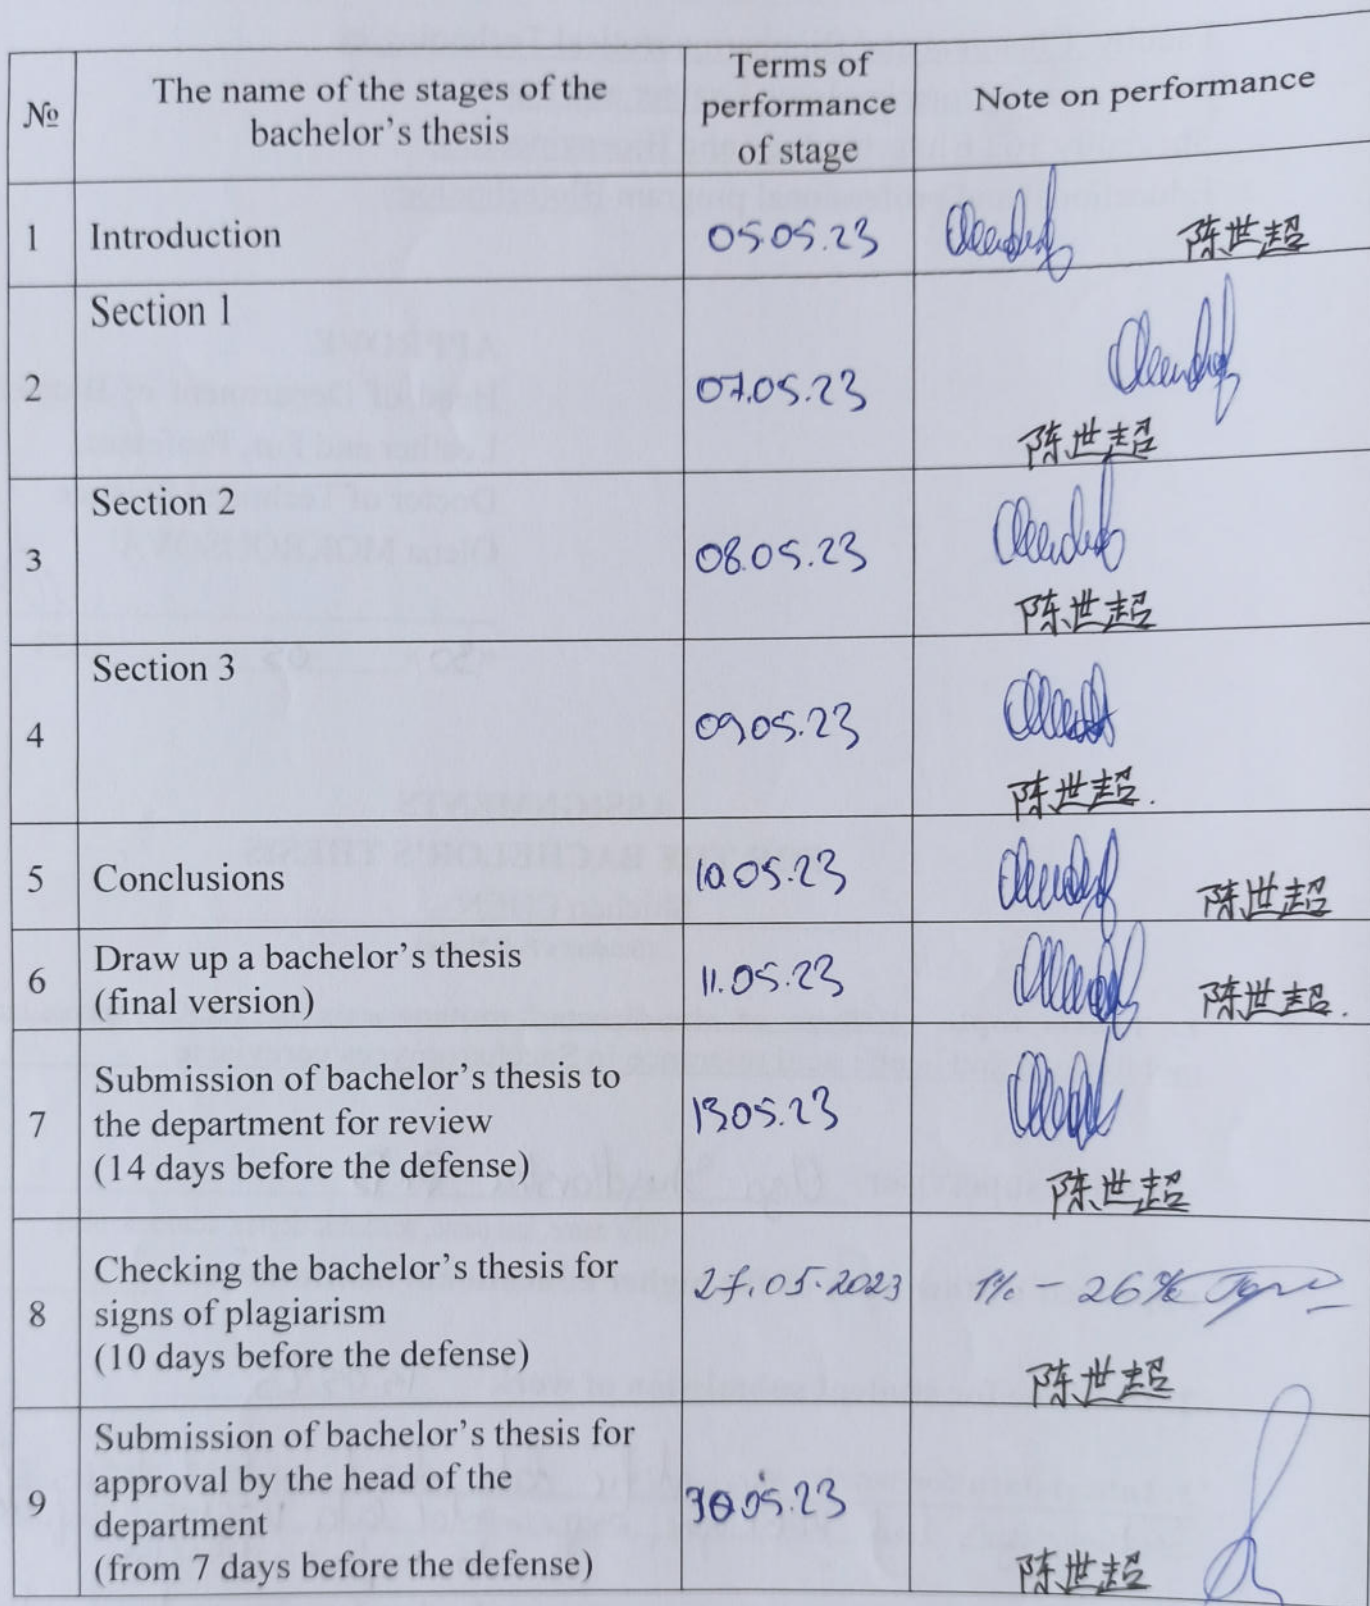 №
The name of the stages of the
bachelor's thesis
Terms of
performance
of stage
Note on performance
1
Introduction
05.05.23
陈世超
2
Section 1
07.05.23
陈世超
3
Section 2
08.05.23
陈世超
4
Section 3
09.05.23
陈世超.
5
Conclusions
10.05.23
陈世超
6
Draw up a bachelor's thesis
(final version)
11.05.23
陈世超.
7
Submission of bachelor's thesis to
the department for review
(14 days before the defense)
13.05.23
陈世超
8
Checking the bachelor's thesis for
signs of plagiarism
(10 days before the defense)
27.05.2023
- 26%
陈世超
9
Submission of bachelor's thesis for
approval by the head of the
department
(from 7 days before the defense)
30.05.23
陈世超